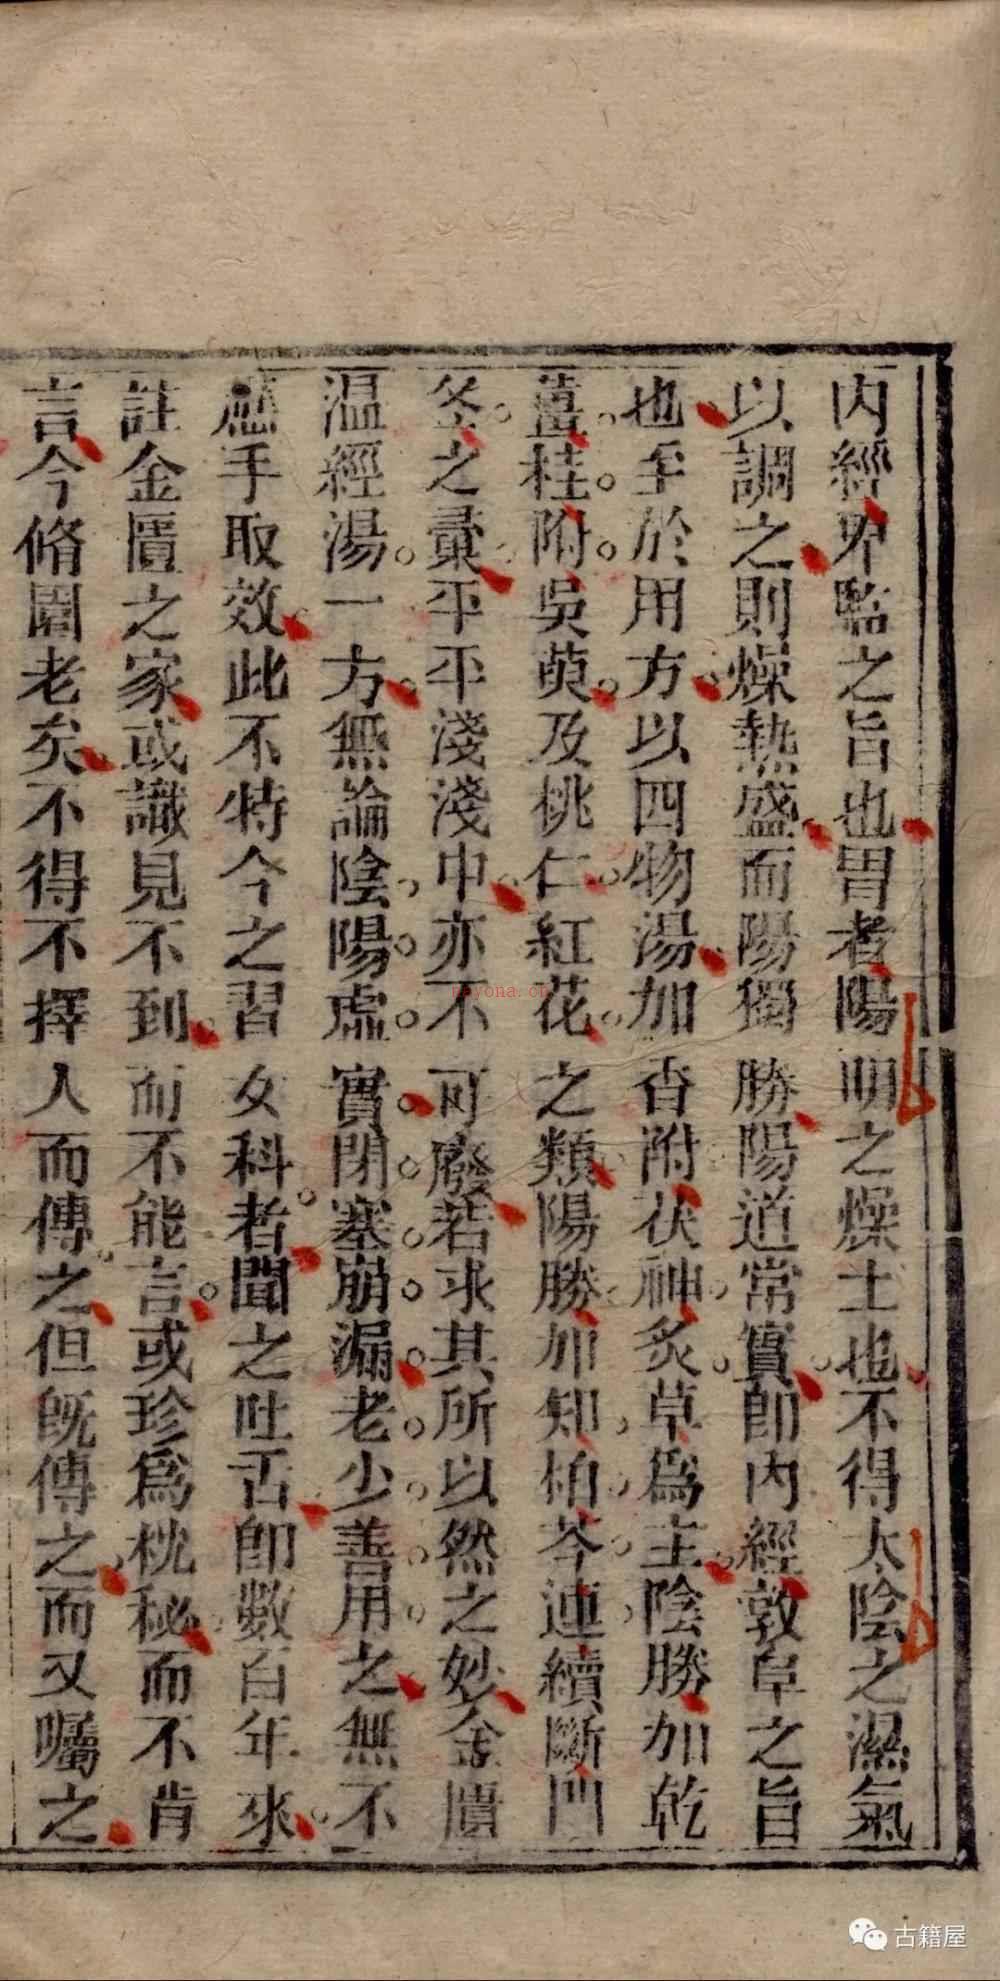 內經卑監之旨也胃者陽明之燥土也不得太陰之濕氣
以調之則燥熱盛而陽獨勝陽道常實卽內經敦阜之旨
也至於用方以四物湯加香附茯神炙草爲主陰勝加乾
薑桂附吳萸及桃仁紅花之類陽勝加知柏芩連續斷門
冬之彙平平淺淺中亦不可廢若求其所以然之妙金匱
温經湯一方無論陰陽虛實閉塞崩漏老少善用之無不
應手取效此不特今之習女科者聞之吐舌卽數百年來
註金匱之家或識見不到而不能言或珍爲枕秘而不肯
言今脩園老矣不得不擇人而傳之但旣傳之而又囑之
nayona.cn
古籍屋